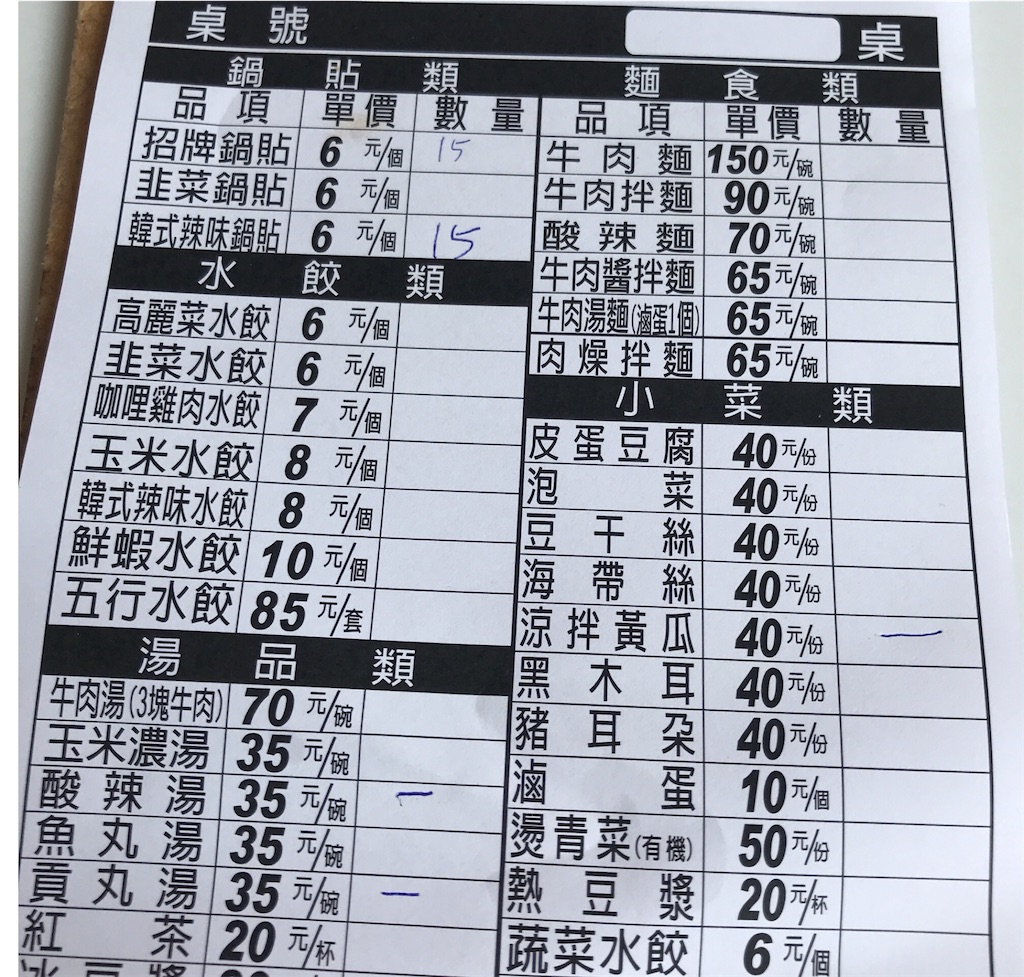 桌號 桌
鍋貼類
品項 單價 數量
招牌鍋貼 6元/個 15
韭菜鍋貼 6元/個
韓式辣味鍋貼 6元/個 15
水餃類
高麗菜水餃 6元/個
韭菜水餃 6元/個
咖哩雞肉水餃 7元/個
玉米水餃 8元/個
韓式辣味水餃 8元/個
鮮蝦水餃 10元/個
五行水餃 85元/套
湯品類
牛肉湯(3塊牛肉) 70元/碗
玉米濃湯 35元/碗
酸辣湯 35元/碗 一
魚丸湯 35元/碗
貢丸湯 35元/碗 一
紅茶 20元/杯
冰豆漿
麵食類
品項 單價 數量
牛肉麵 150元/碗
牛肉拌麵 90元/碗
酸辣麵 70元/碗
牛肉醬拌麵 65元/碗
牛肉湯麵(滷蛋1個) 65元/碗
肉燥拌麵 65元/碗
小菜類
皮蛋豆腐 40元/份
泡菜 40元/份
豆干絲 40元/份
海帶絲 40元/份
涼拌黃瓜 40元/份 一
黑木耳 40元/份
豬耳朶 40元/份
滷蛋 10元/個
燙青菜(有機) 50元/份
熱豆漿 20元/杯
蔬菜水餃 6元/個